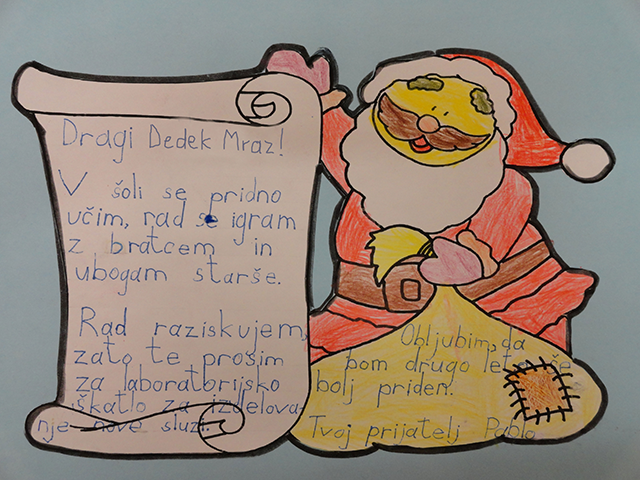 Dragi Dedek Mraz!
V šoli se pridno
učim, rad se igram
z bratcem in
ubogam starše.
Rad raziskujem,
zato te prosim
za laboratorijsko
škatlo za izdelova-
nje nove sluzi.
Obljubim, da
bom drugo leto še
bolj priden.
Tvoj prijatelj Pablo